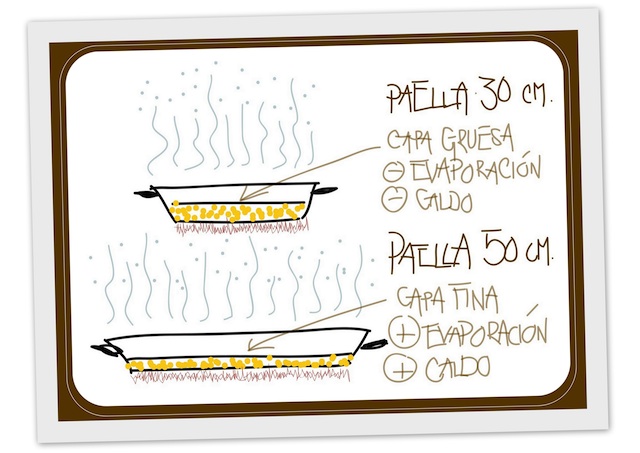 PAELLA 30 CM.
CAPA GRUESA
⊖ EVAPORACIÓN
⊖ CALDO
PAELLA 50 CM.
CAPA FINA
⊕ EVAPORACIÓN
⊕ CALDO